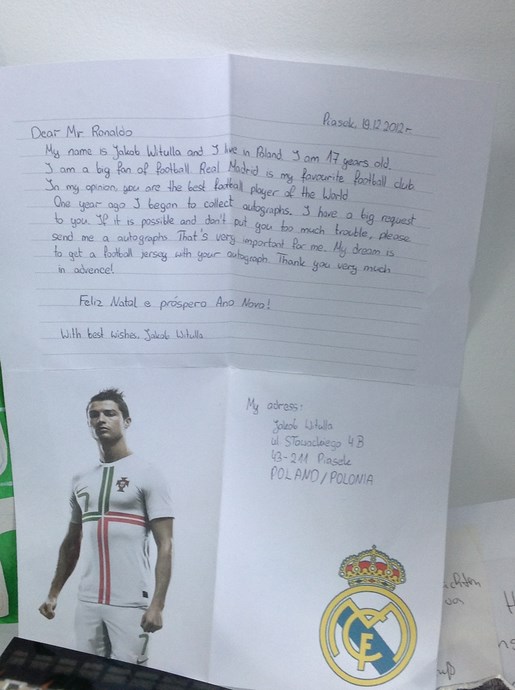 Piasek, 19.12.2012r.
Dear Mr Ronaldo
My name is Jakob Witulla and I live in Poland. I am 17 years old.
I am a big fan of football. Real Madrid is my favourite football club.
In my opinion, you are the best football player of the World
One year ago I began to collect autographs. I have a big request
to you. If it is possible and don't put you too much trouble, please
send me a autographs. That's very important for me. My dream is
to get a football jersey with your autograph. Thank you very much
in advence!
Feliz Natal e próspero Ano Novo!
With best wishes. Jakob Witulla
My adress:
Jakob Witulla
ul. Słowackiego 4B
43-211 Piasek
POLAND/POLONIA
7
7